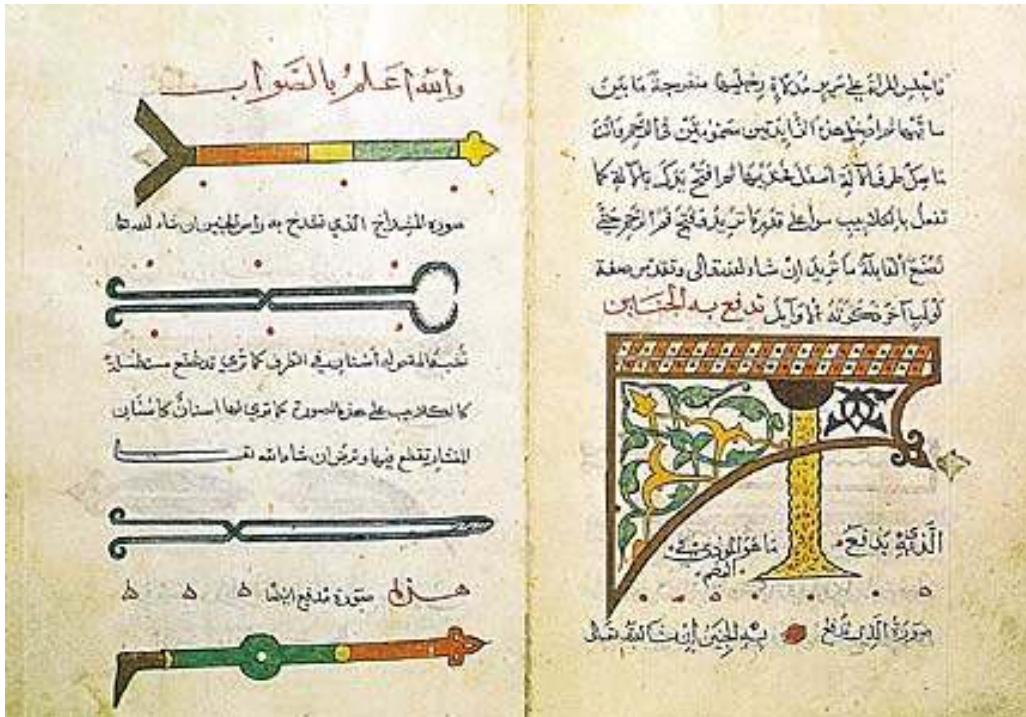 فاجلس المراة على سرير مدلاة رجليها منفرجة ما بين
ساقيها ثم ادخل هذه الزايدتين مضمومتين في الرحم وانت
ماسك طرف الآلة اسفل فخذيها ثم افتح يدك بالآلة كما
تفعل بالكلاليب سوا على قدر ما تريد وتفتح فم الرحم حتى
تصنع القابلة ما تريد ان شاء الله تعالى وتقدس صفة
لولب آخر ذكرته الاوايل تدفع به الجنين
يدفع ما هو
صورة الذي تدفع به الجنين ان شا الله تعالى
والله اعلم بالصواب
صورة المشداخ الذي تشدخ به راس الجنين ان شاء الله تعا
تشبه المقص له اسنان في الطرف كما ترى قد تصنع مستطيلة
كالكلاليب على هذه الصورة كما ترى لها اسنان كاسنان
المنشار تقطع بها وترض ان شاء الله تعا
صورة مدفع ايضا